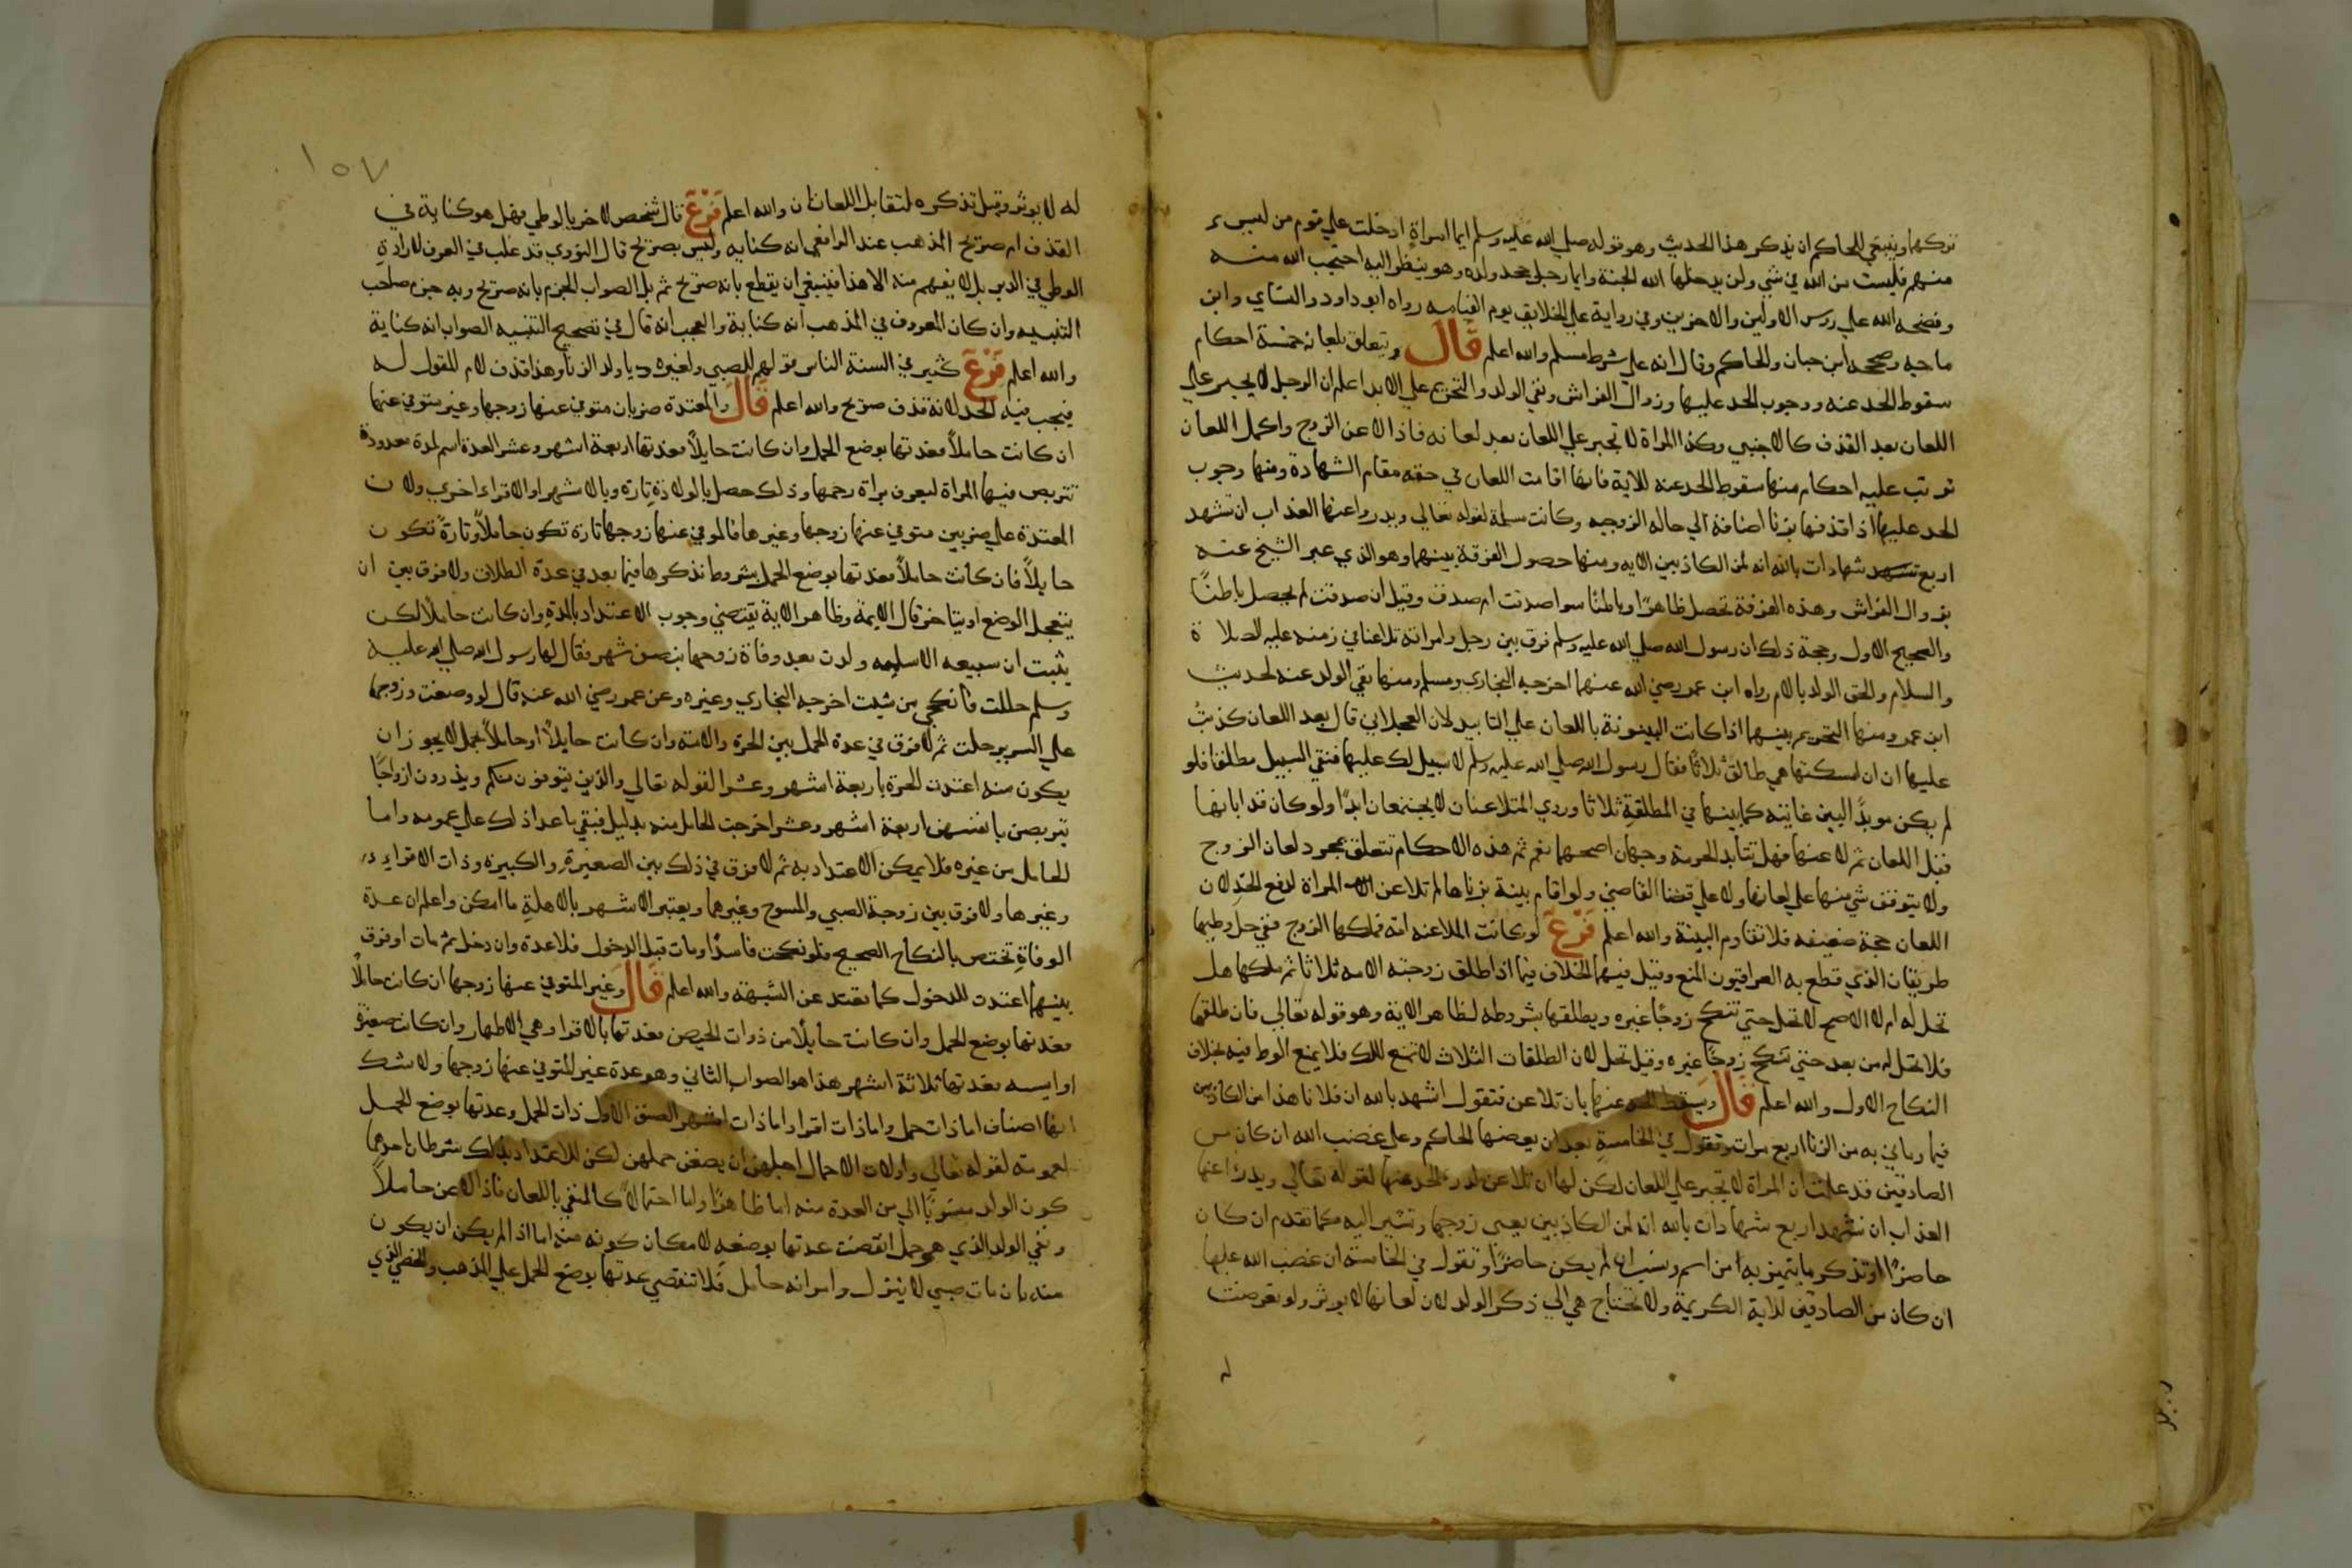 تركها وينبغي للحاكم ان يذكر هذا الحديث وهو قوله صلي الله عليه وسلم ايما امراة ادخلت علي قوم من ليس
منهم فليست من الله في شي ولن يدخلها الله الجنة وايما رجل جحد ولده وهو ينظر اليه احتجب الله منه
وفضحه الله علي روس الاولين والاخرين وفي رواية علي الخلايق يوم القيامه رواه ابو داود والنساي وابن
ماجه وصححه ابن حبان والحاكم وقال انه علي شرط مسلم والله اعلم قال ويتعلق بلعانه خمسة احكام
سقوط الحد عنه ووجوب الحد عليها وزوال الفراش ونفي الولد والتحريم علي الابد اعلم ان الرجل لا يجبر علي
اللعان بعد القذف كالاجنبي وكذا المراة لا تجبر علي اللعان بعد لعانه فاذا لاعن الزوج واكمل اللعان
ترتب عليه احكام منها سقوط الحد عنه للاية فانها اقامت اللعان في حقه مقام الشهادة ومنها وجوب
الحد عليها اذا قذفها بزنا اضافة الي حاله الزوجيه وكانت مسلمة لقوله تعالي ويدروا عنها العذاب ان تشهد
اربع شهادات بالله انه لمن الكاذبين الايه ومنها حصول الفرقة بينهما وهو الذي عبر الشيخ عنه
بزوال الفراش وهذه الفرقة تحصل ظاهرا وباطنا سوا صدقت ام صدف وقيل ان صدقت لم يحصل باطنا
والصحيح الاول وحجة ذلك ان رسول الله صلي الله عليه وسلم فرق بين رجل وامراته تلاعنا في زمنه عليه الصلاة
والسلام والحق الولد بالام رواه ابن عمر رضي الله عنهما اخرجه البخاري ومسلم ومنها نفي الولد عنه لحديث
ابن عمر ومنها التحريم بينهما اذا كانت البينونة باللعان علي التابيد لان العجلاني قال بعد اللعان كذبت
عليها ان امسكتها هي طالق ثلاثا فقال رسول الله صلي الله عليه وسلم لا سبيل لك عليها فنفي السبيل مطلقا فلو
لم يكن موبدا لبين غايته كما بينها في المطلقة ثلاثا وروي المتلاعنان لا يجتمعان ابدا ولو كان قد ابانها
قبل اللعان ثم لاعنها فهل تتابد الحرمة وجهان اصحهما نعم ثم هذه الاحكام تتعلق بمجرد لعان الزوج
ولا يتوقف شي منها علي لعانها ولا علي قضا القاضي ولو اقام بينة بزناها لم تلاعن المراة لدفع الحد لان
اللعان حجة ضعيفه فلا تقاوم البينة والله اعلم فرع لو كانت الملاعنه امة فملكها الزوج ففي حل وطيها
طريقان الذي قطع به العراقيون المنع وقيل فيها الخلاف فيما اذا طلق زوجته الامه ثلاثا ثم ملكها هل
تحل له ام لا الاصح لا تحل حتي تنكح زوجا غيره ويطلقها بشروطه لظاهر الاية وهو قوله تعالي فان طلقها
فلا تحل له من بعد حتي تنكح زوجا غيره وقيل تحل لان الطلقات الثلاث لا تمنع الملك فلا يمنع الوط فيه بخلاف
النكاح الاول والله اعلم قال ويسقط الحد عنها بان تلاعن فتقول اشهد بالله ان فلانا هذا لمن الكاذبين
فيما رماني به من الزنا اربع مرات وتقول في الخامسة بعد ان يعضها الحاكم وعلي غضب الله ان كان من
الصادقين قد علمت ان المراة لا تجبر علي اللعان لكن لها ان تلاعن لدر الحد عنها لقوله تعالي ويدرا عنها
العذاب ان تشهد اربع شهادات بالله انه لمن الكاذبين يعني زوجها وتشير اليه كما تقدم ان كان
حاضرا او تذكر ما يتميز به من اسم ونسب ان لم يكن حاضرا وتقول في الخامسة ان غضب الله عليها
ان كان من الصادقين للاية الكريمة ولا تحتاج هي الي ذكر الولد لان لعانها لا يوثر ولو تعرضت
له
١٥٧
له لا يوثر وقيل تذكره لتقابل اللعانان والله اعلم فرع قال شخص لاخر يا لوطي فهل هو كناية في
القذف ام صريح المذهب عند الرافعي انه كنايه وليس بصريح قال النووي قد غلب في العرف لارادة
الوطي في الدبر بل لا يفهم منه الا هذا فينبغي ان يقطع بانه صريح ثم بل الصواب الجزم بانه صريح وبه جزم صاحب
التنبيه وان كان المعروف في المذهب انه كناية والعجب انه قال في تصحيح التنبيه الصواب انه كناية
والله اعلم فرع كثير في السنة الناس قولهم للصبي ولغيره يا ولد الزنا وهذا قذف لام المقول له
فيجب فيه الحد لانه قذف صريح والله اعلم قال والمعتدة ضربان متوفي عنها زوجها وغير متوفي عنها
ان كانت حاملا فعدتها بوضع الحمل وان كانت حايلا فعدتها اربعة اشهر وعشر العدة اسم لمدة معدودة
تتربص فيها المراة ليعرف براة رحمها وذلك حصل بالولادة تارة وبالاشهر او الاقراء اخري ولان
المعتدة علي ضربين متوفي عنها زوجها وغيرها فالموفي عنها زوجها تارة تكون حاملا وتارة تكون
حايلا فان كانت حاملا فعدتها بوضع الحمل بشروط نذكرها فيما بعد في عدة الطلاق ولا فرق بين ان
يتعجل الوضع او يتاخر قال الايمة وظاهر الاية يقتضي وجوب الاعتداد بالمدة وان كانت حاملا لكن
يثبت ان سبيعه الاسلميه ولدت بعد وفاة زوجها بنصف شهر فقال لها رسول الله صلي الله عليه
وسلم حللت فانكحي من شيت اخرجه البخاري وغيره وعن عمر رضي الله عنه قال لو وضعت وزوجها
علي السرير حلت ثم لا فرق في عدة الحمل بين الحرة والامة وان كانت حايلا او حاملا بحمل لا يجوز ان
يكون منه اعتدت الحرة باربعة اشهر وعشرا لقوله تعالي والذين يتوفون منكم ويذرون ازواجا
يتربصن بانفسهن اربعة اشهر وعشرا خرجت الحامل منه بدليل فبقي ما عدا ذلك علي عمومه واما
الحامل من غيره فلا يمكن الاعتداد به ثم لا فرق في ذلك بين الصغيرة والكبيرة وذات الاقراء
وغيرها ولا فرق بين زوجة الصبي والمسوح وغيرهما ويعتبر الاشهر بالاهلة ما امكن واعلم ان عدة
الوفاة تختص بالنكاح الصحيح فلو نكحت فاسدا ومات قبل الدخول فلا عدة وان دخل ثم مات او فرق
بينهما اعتدت للدخول كما تعتد عن الشبهة والله اعلم قال وغير المتوفي عنها زوجها ان كانت حاملا
فعدتها بوضع الحمل وان كانت حايلا من ذوات الحيض فعدتها بالاقرا وهي الاطهار وان كانت صغيرة
او ايسه فعدتها ثلاثة اشهر هذا هو الصواب الثاني وهو عدة غير المتوفي عنها زوجها ولا شك
انها اصناف اما ذات حمل واما ذات اقرا واما ذات اشهر الصنف الاول ذات الحمل وعدتها بوضع الحمل
لعمومه لقوله تعالي واولات الاحمال اجلهن ان يضعن حملهن لكن للاعتداد بذلك شرطان احدهما
كون الولد منسوبا الي من العدة منه اما ظاهرا واما احتمالا كالمنفي باللعان فاذا لاعن حاملا
ونفي الولد الذي هو حمل انقضت عدتها بوضعه لامكان كونه منه اما اذا لم يكن ان يكون
منه بان مات صبي لا ينزل وامراته حامل فلا تنقضي عدتها بوضع الحمل علي المذهب والخصي الذي